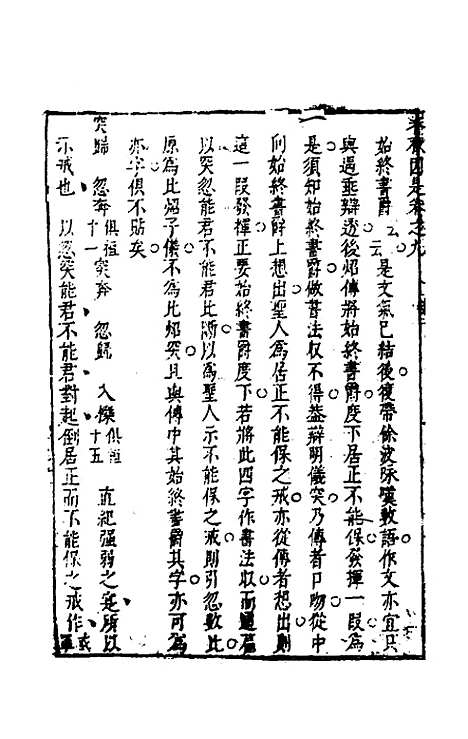 春秋因是卷之九
始終書爵云云是文氣已結後復帶餘波咏嘆數語作文亦宜只
與過垂辯透後炤傳將始終書爵度下居正不能保發揮一段為
是須知始終書爵做書法収不得蓋辯明儀突乃傳者口吻從中
何始終書爵上想出聖人為居正不能保之戒亦從傳者想出則
這一段發揮正要始終書爵度下若將此四字作書法収而
以突忽能君不能君比斷以為聖人示不能保之戒則引忽數比
原為比炤子儀不為比炤突且與傳中其始終書爵其字亦可為
亦字俱不貼矣
突歸 忽奔俱桓十一 突奔 忽歸 入櫟俱桓十五 直紀強弱之寔所以
示戒也 以忽突能君不能君對起倒居正而不能保之戒作單
或